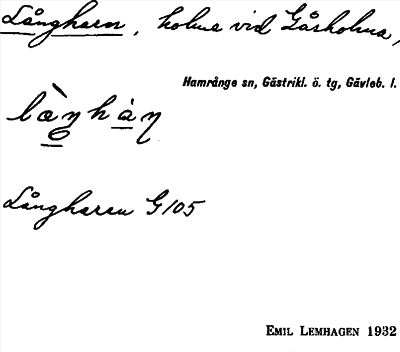 Långharn, holme vid Gåsholma,
Hamrånge sn, Gästrikl. ö. tg, Gävleb. l.
Långharen G 105
EMIL LEMHAGEN 1932